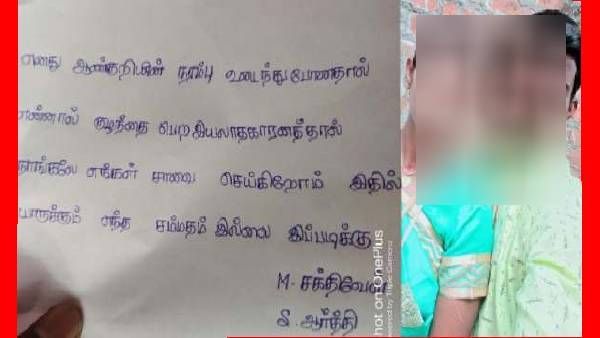 எனது ஆண்குறியின் நரம்பு உடைந்துபோனதால்
என்னால் குழந்தை பெற இயலாதகாரனத்தால்
நாங்களே எங்கள் சாவை செய்கிறோம் இதில்
யாருக்கும் எந்த சம்மதம் இல்லை இப்படிக்கு
M. சக்திவேல்
S. ஆர்த்தி
hot on OnePlus
owered by Triple Camera